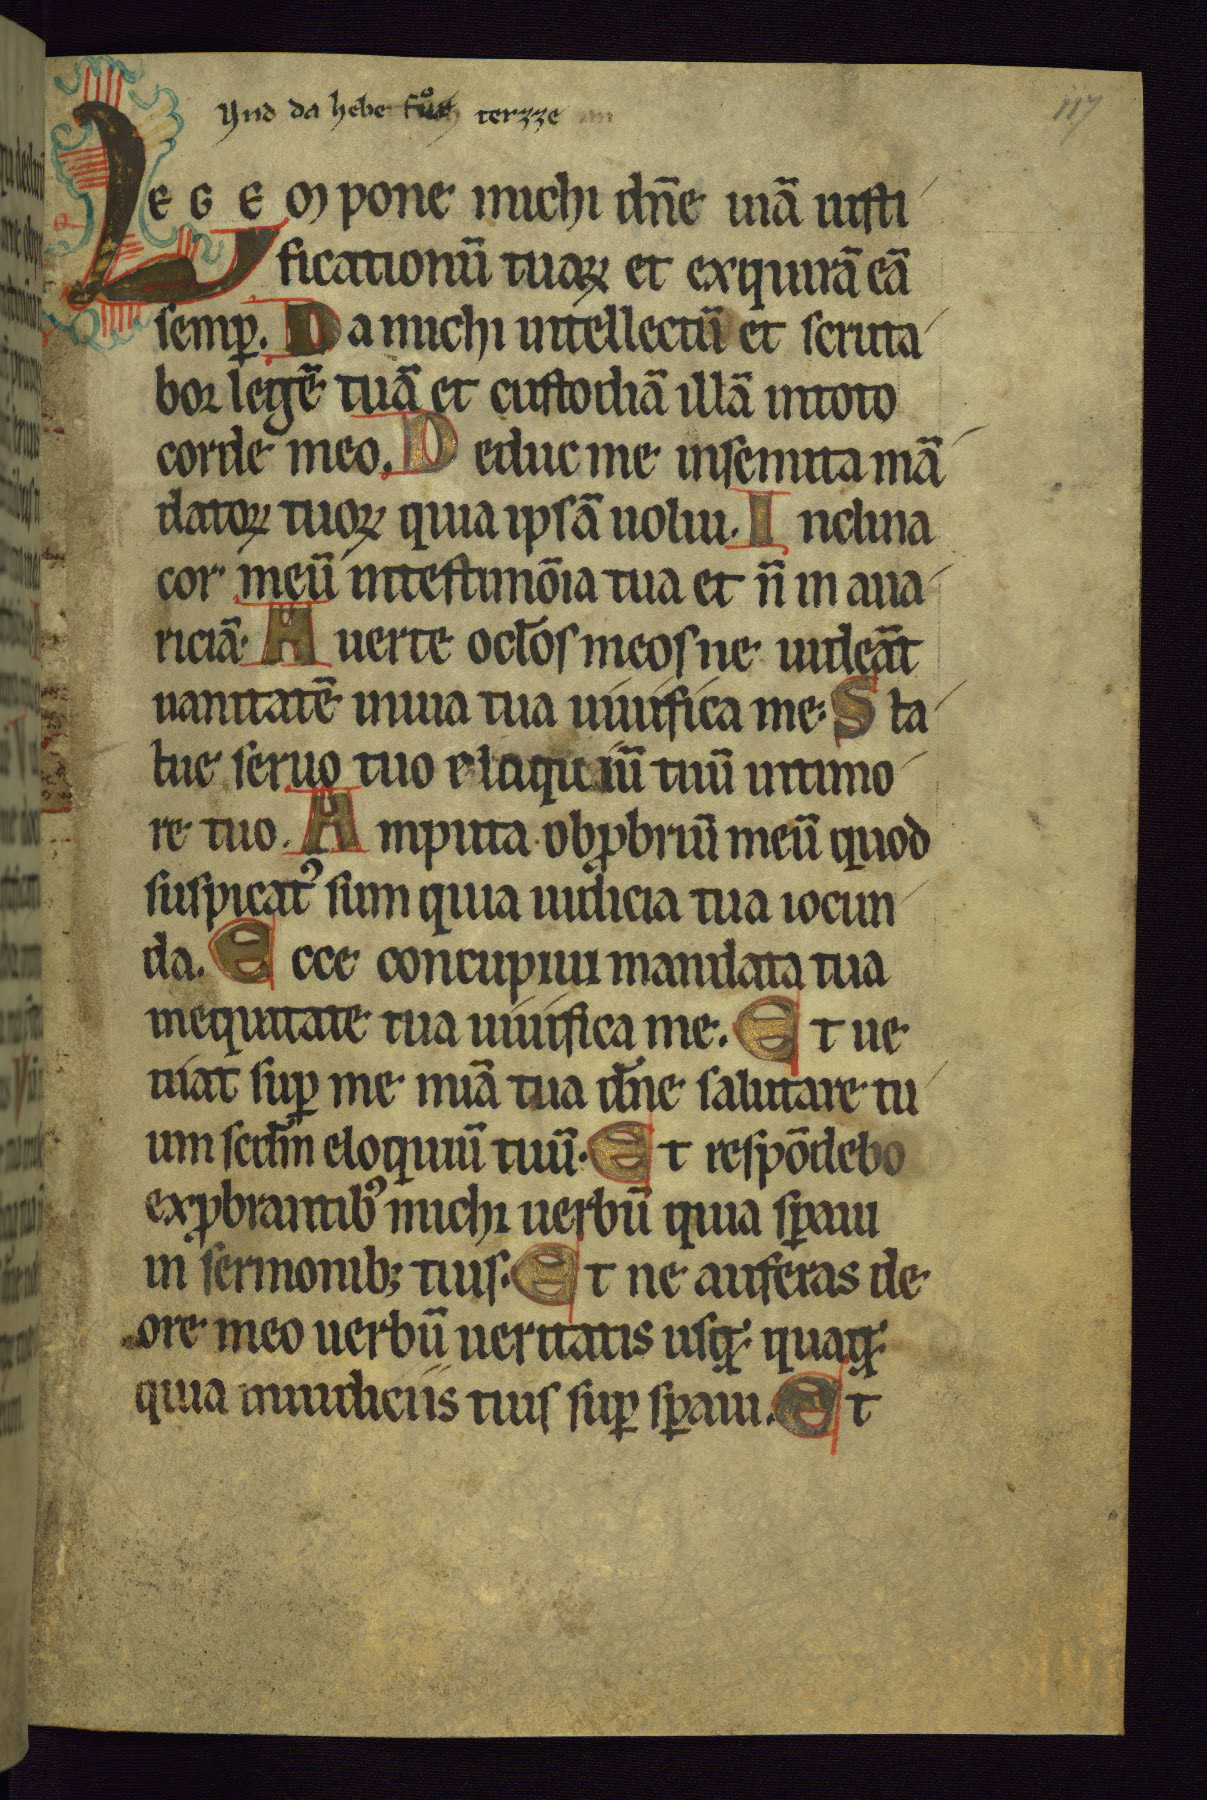 Ynd da hebe terzze an
117
LEGEM pone michi dn̄e uiā iusti
ficationū tuaꝝ et exquirā eā
semꝑ. Da michi intellectū et scruta
bor legē tuā et custodiā illā intoto
corde meo. Deduc me insemita mā
datoꝝ tuoꝝ quia ipsā uolui. Inclina
cor meū intestimōia tua et n̄ in aua
riciā. Auerte oclōs meos ne uideāt
uanitatē inuia tua uiuifica me. Sta
tue seruo tuo eloquiū tuū intimo
re tuo. Amputa obꝓbriū meū quod
suspicatꝰ sum quia iudicia tua iocun
da. Ecce concupiui mandata tua
inequitate tua uiuifica me. Et ue
niat suꝑ me mīa tua dn̄e salutare tu
um scdm̄ eloquiū tuū. Et respōdebo
exꝓbrantibꝰ michi uerbū quia sꝑaui
in sermonibꝫ tuis. Et ne auferas de
ore meo uerbū ueritatis usqꝫ quaqꝫ
quia iniudiciis tuis suꝑ sꝑaui. Et